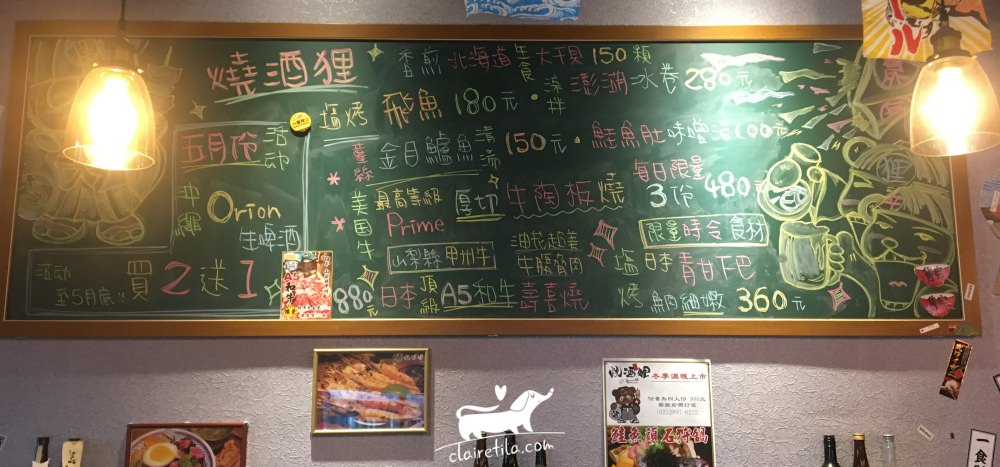 燒酒狸
五月份
活動
沖繩
Orion
生啤酒
買2送1
活動
至5月底!!
香煎北海道生食大干貝150顆
澎湖冰卷280元
塩烤飛魚180元
金目鱸魚清流150元
鮭魚肚味噌湯100元
美国牛
最高等級
Prime
厚切牛陶板燒
每日限量
3份480元
山梨縣甲州牛
限量時令食材
880元
日本頂級A5和牛壽喜燒
塩烤
日本青甘下巴
魚肉細嫩360元
A5和牛
燒酒狸
冬季溫暖上市
鮭魚頭石狩鍋
clairetila.com
一食